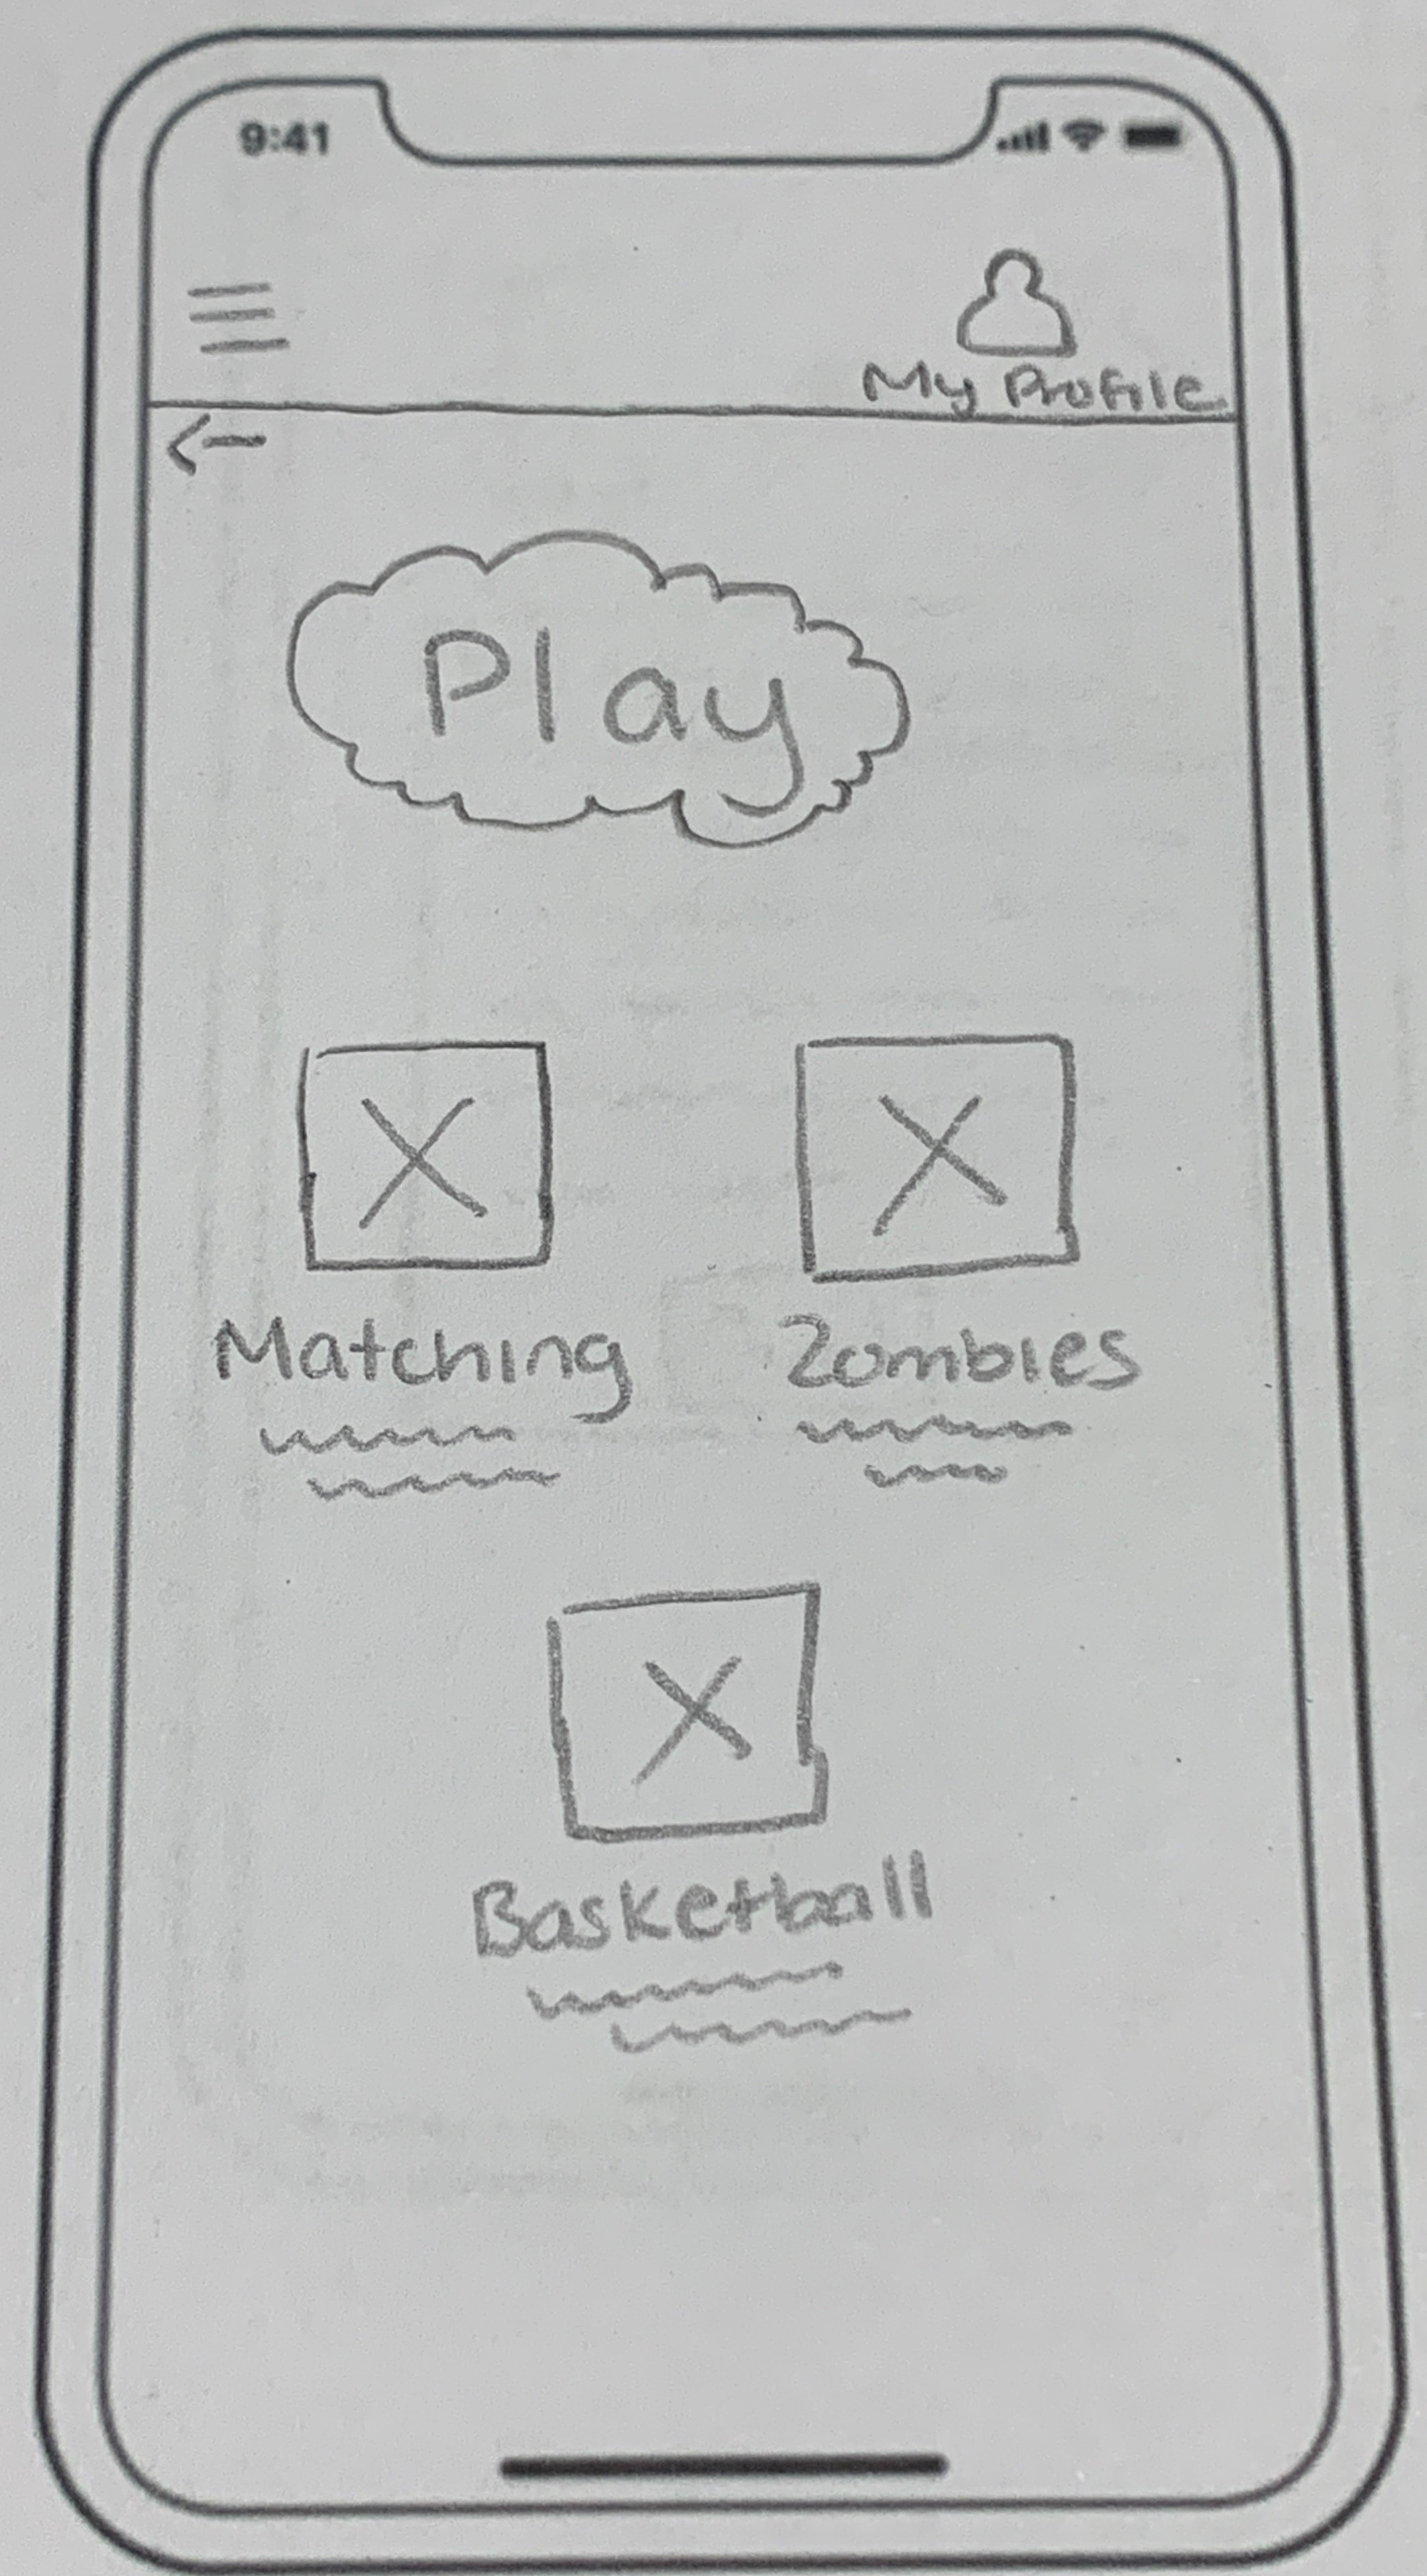 9:41
My Profile
Play
Matching
Zombies
Basketball